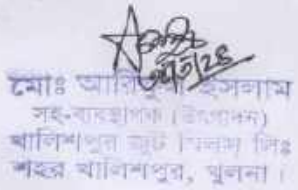 মোঃ আরিফুল ইসলাম
সহ-ব্যবস্থাপক (উৎপাদন)
খালিশপুর জুট মিলস লিঃ
শহর খালিশপুর, খুলনা।